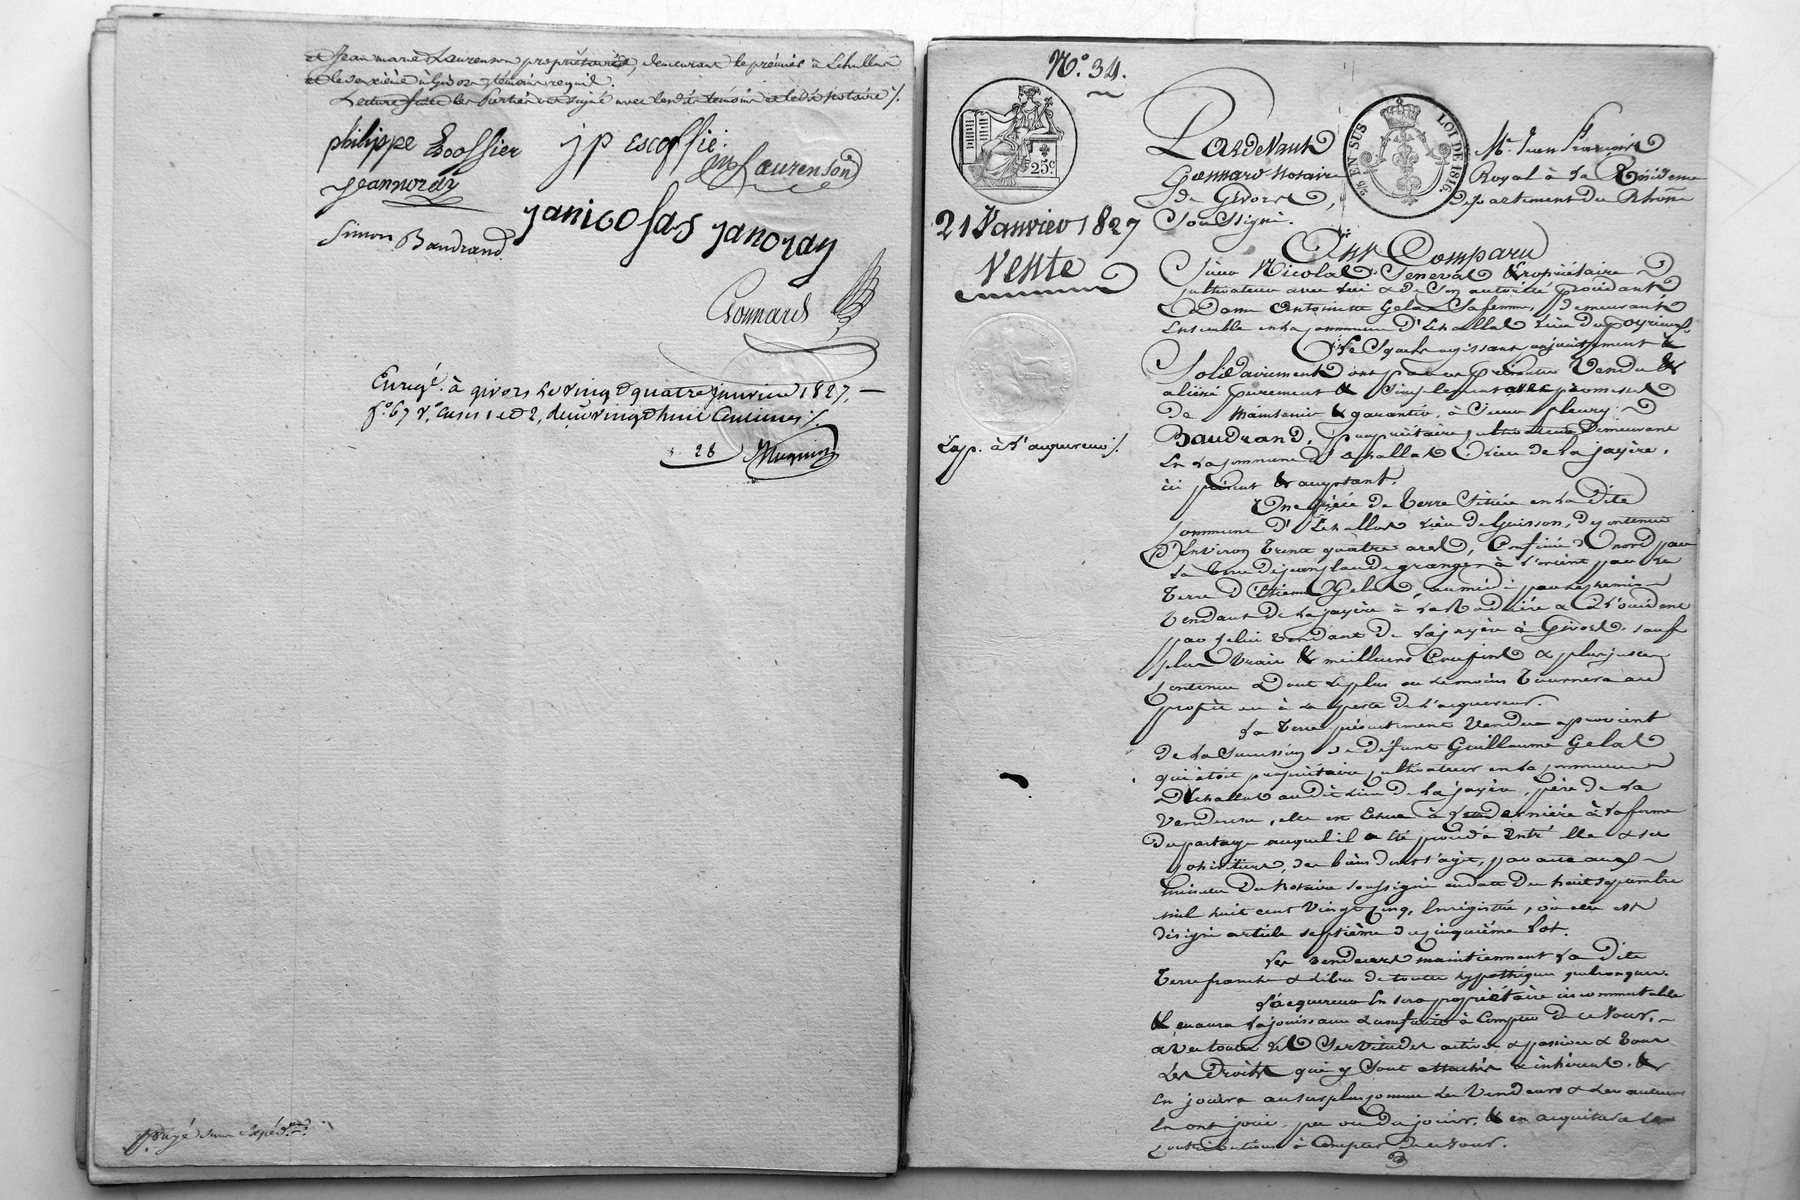 et Jean marie Laurenson propriétaire, demeurant le premier à Echallas
et le deuxième à Givors, témoins requis.
Lecture faite les Parties ont signé avec les dts témoins et le dt Notaire ./.
philippe Escoffier
jp escoffie
JM Laurenson
jeannoray
janicolas janoray
Simon Baudrand
Gonnard
Enregé. à givors le vingt quatre janvier 1827,
fo. 67 Vo. cases 1 et 2, deux vingt huit Centimes ./.
28
payé une expédition
No. 34.
25c.
25c EN SUS
LOI DE 1816.
21 Janvier 1827
Vente
Exp. à l'acquereur ./.
Pardevant Me. Jean François
Gonnard Notaire Royal à la Résidence
de Givors, département du Rhône
Soussigné.
Ont Comparu
Sieur Nicolas Seneval Propriétaire
cultivateur avec lui & de Son autorité procédant
Dame Antoinette Gelas Sa femme, demeurants
Ensemble en la commune d'Echallas lieu du
Lesquels agissant conjointement &
Solidairement ont par ces présentes Vendu &
aliéné purement & Simplement avec promesse
de maintenir & garantir, à Sieur fleury
Baudrand, propriétaire cultivateur Demeurant
En la commune d'Echallas Lieu de la jayère,
ici présent & acceptant.
Une pièce de Terre Située en la dite
commune d'Echallas lieu de Guisson, de contenue
d'Environ Trente quatre ares, Confinée au nord par
la Terre de jean claude granger à l'orient par la
Terre d'Etienne Gelas, au midi par le chemin
Tendant de la jayère à la & à l'occident
par celui tendant de la jayère à Givors. sauf
plus vrais & meilleurs Confins & plus juste
contenue Dont le plus ou le moins Tournera au
profit ou à la perte de l'acquereur.
La Terre présentement Vendue provient
de la Succession de défunt Guillaume Gelas
qui étoit propriétaire cultivateur en la commune
D'Echallas au dit Lieu de la jayère, père de la
Venderesse, elle est échue à cette dernière à la forme
du partage auquel il a été procédé entr'elle & ses
cohéritiers, des biens dont s'agit, par acte aux
minutes du Notaire soussigné en date du huit septembre
mil huit cent Vingt Cinq, Enregistré, où elle est
désignée article septième du cinquième lot.
Les vendeurs maintiennent la dite
Terre franche & libre de toutes hypothèques quelconques.
L'acquereur En sera propriétaire incommutable
& en aura la jouissance & usufruit à Compter de ce Jour,
avec toutes les Servitudes actives & passives & tous
Les Droits qui y Sont attachés & inhérents. &
En jouira au surplus comme les Vendeurs & leurs auteurs
En ont joui, pu ou dû jouir. & en acquittera les
contributions à Compter de ce Jour.